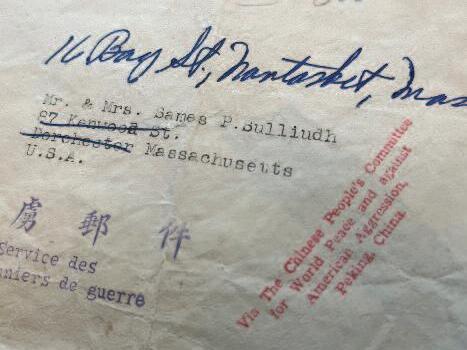 16 Bay St., Nantasket, Mass
Mr. & Mrs. Sames P.Sulliudh
67 Kenwood St.
Dorchester Massachusetts
U.S.A.
虜 郵 件
service des
niers de guerre
Via The Chinese People's Committee
for World Peace and against
American Aggression,
Peking, China.